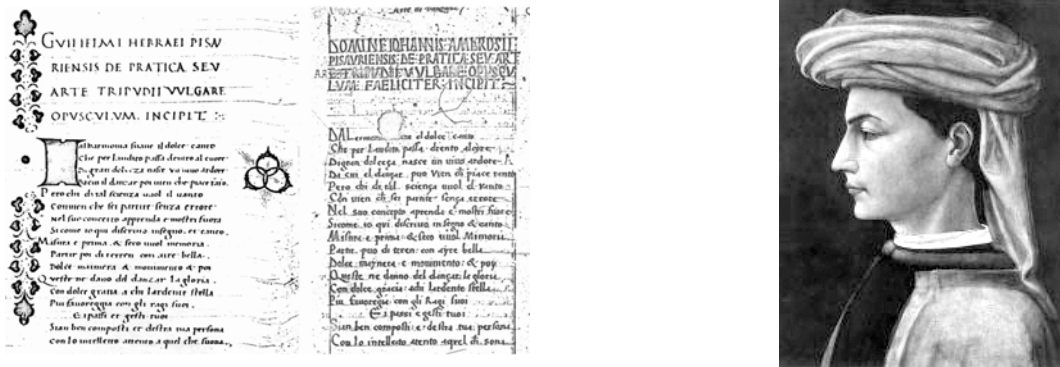 GVILIELMI HEBRAEI PISAV
RIENSIS DE PRATICA SEV
ARTE TRIPVDII VVLGARE
OPVSCVLVM. INCIPIT
al harmonia suaue il dolce canto
Che per lauditto passa dentro al cuore
Di gran dolcezza nasce vn viuo ardore
il danzar poi vien che piace tanto
Pero chi di tal scienza vuol il uanto
Conuien che sei partite senza errore
Nel suo concetto apprenda e mostri fuora
Si come io qui discriuo insegno et canto.
Misura e prima & seco vuol memoria.
Partir poi di terren con aire bella.
Dolce mainera & mouimento & poi
Queste ne dano del danzar la gloria.
Con dolce gratia a chi lardente stella
Piu fauoreggia con gli ragi suoi.
E i passi et gesti tuoi
Sian ben composti et destra tua persona
Con lo intelletto attento a quel che suona.
DOMINE IOHANNIS AMBROSII
PISAVRIENSIS DE PRATICA SEV ART
TRIPVDII VVLGARE OPVSCV
LVM FAELICITER INCIPIT
DAL el dolce canto
Che per lauditu passa drento
Digran dolceça nasce un uiuo ardore
Da cui el dançar puo vien chi piace tanto
Pero chi di tal sciença uuol el uanto
Con vien chi sei partite sença errore
Nel suo concepto aprenda e mostri fuore
Sicome io qui discriuo insegno & canto
Misura e prima & seco uuol Memoria
Partir puo di teren con ayre bella
Dolce maynera e mouimento & poy
Queste ne donno del dançar la gloria
Con dolce gracia achi lardente stella
Piu fauoregia con gli Ragi suoi
E i passi e gesti tuoi
Sian ben composti e destra tua persona
Con lo intelletto atento aquel chi sona